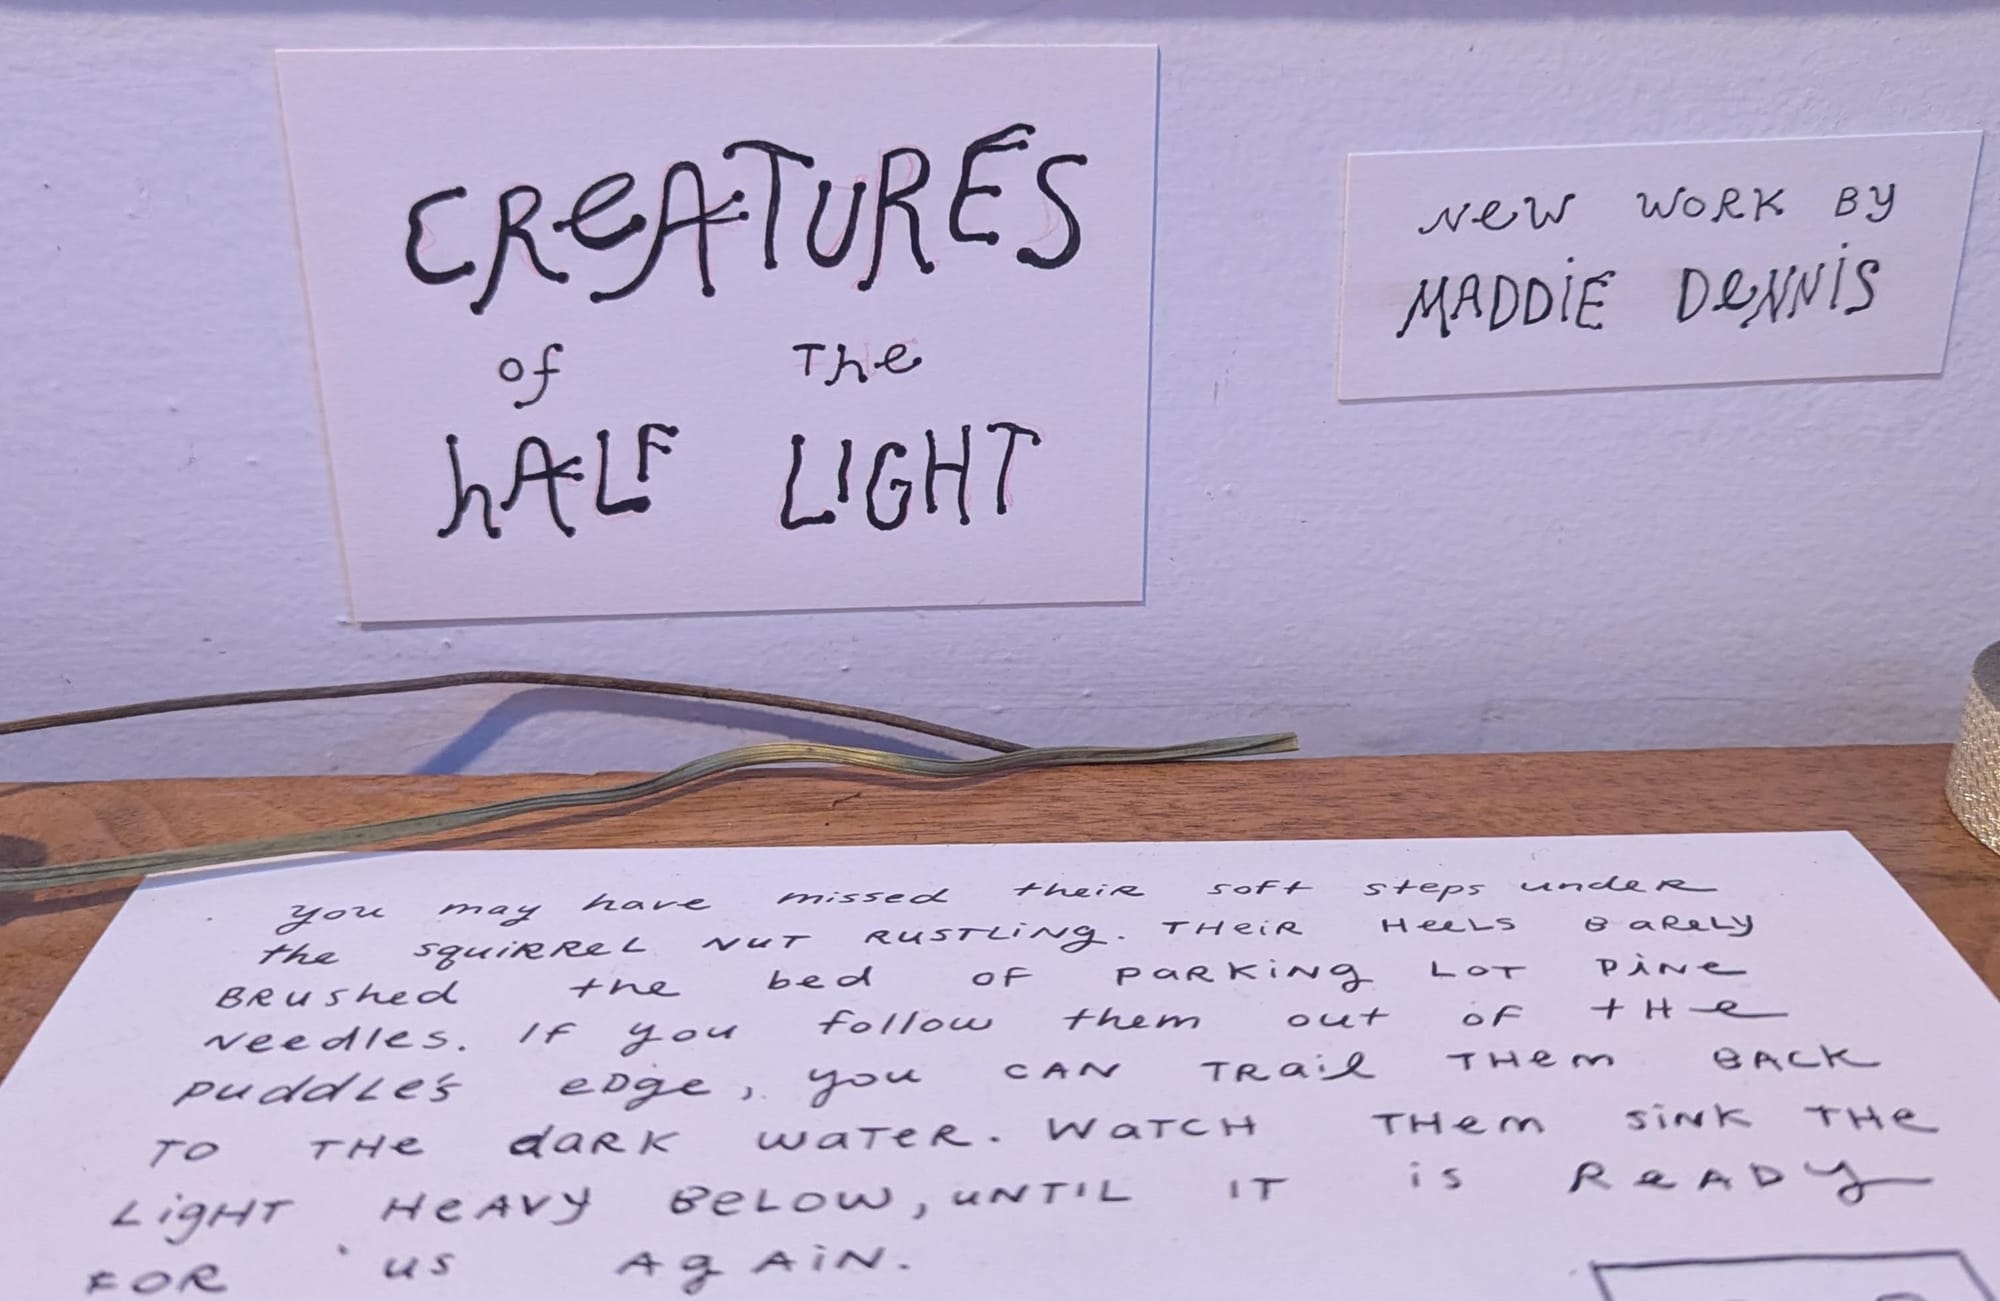 CREATURES
of The
hALF LIGHT
NeW WORK BY
MADDiE DeNNiS
you may have missed theiR soft steps undeR
the squiRReL NUT RUSTLiNg. THeiR HeeLS BaReLy
BRushed the bed OF PaRKiNg LOT PiNe
Needles. If you follow them out of tHe
puddLe's eDge, you CAN TRaiL THem BACK
TO THe daRK WaTeR. WaTCH THem SiNK THe
LigHT HeAVy BeLOW, UNTIL IT is ReADy
FOR us AgAiN.